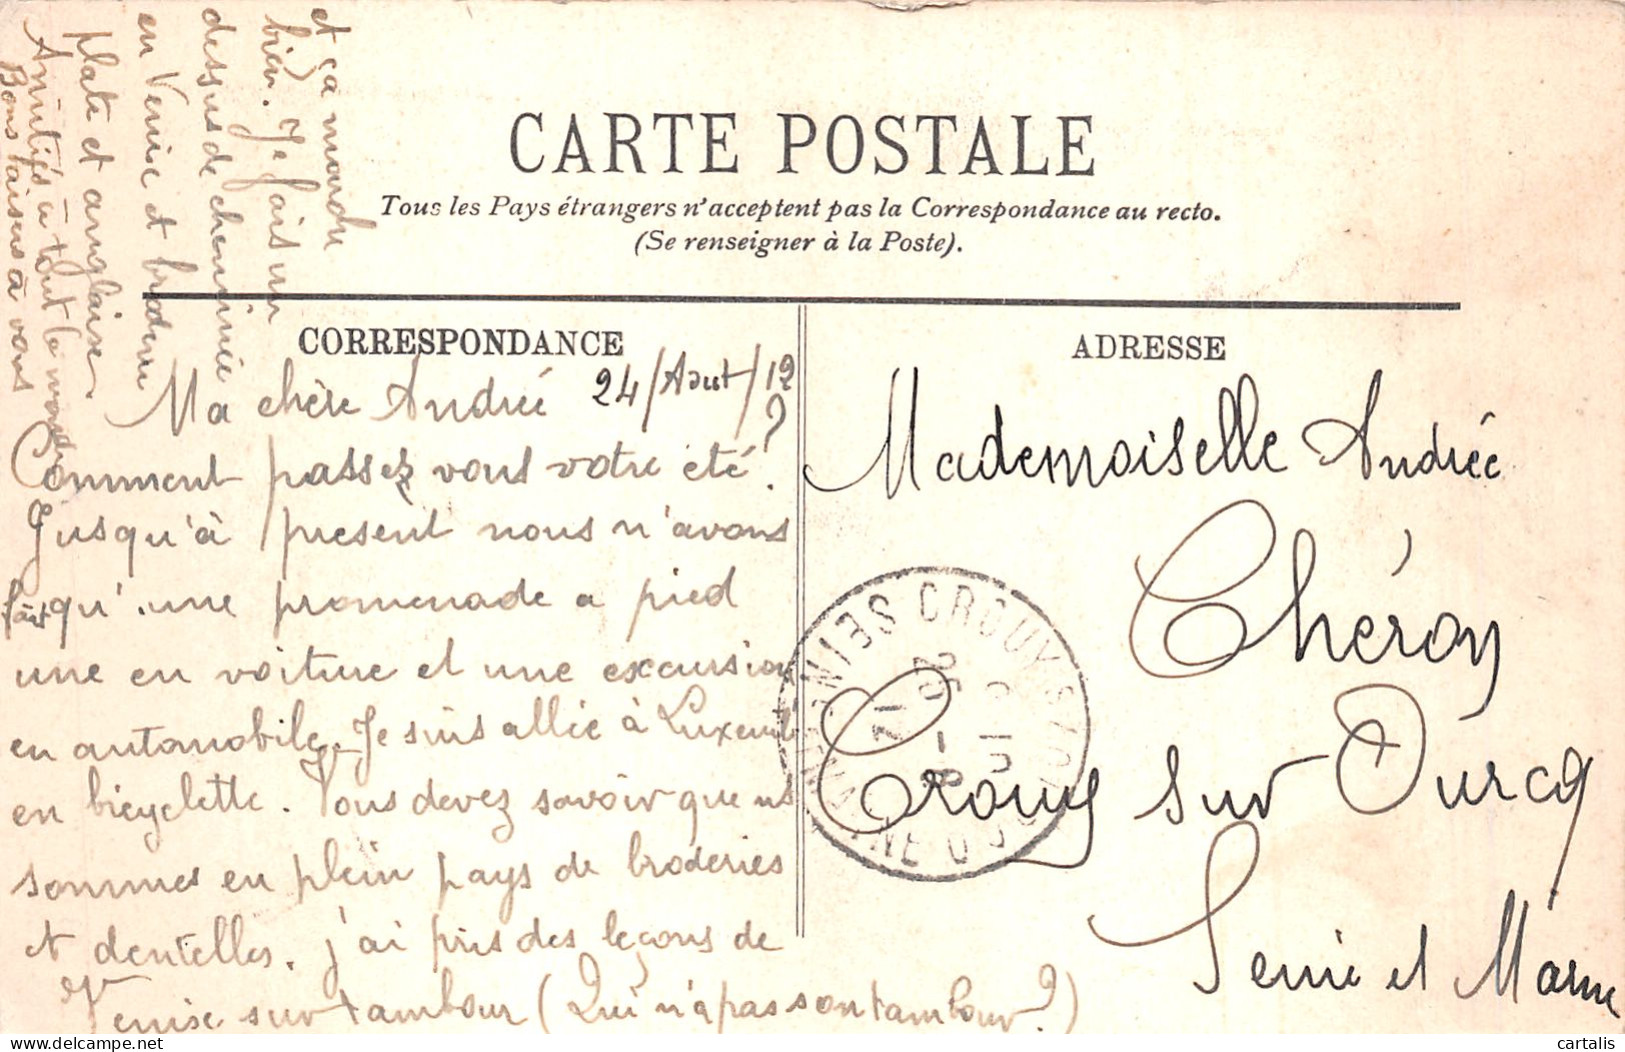 CARTE POSTALE
Tous les Pays étrangers n'acceptent pas la Correspondance au recto.
(Se renseigner à la Poste).
CORRESPONDANCE
24/Aout/12
Ma chère Andrée
Comment passez vous votre été ?
Jusqu'à présent nous n'avons
fait qu'une promenade a pied
une en voiture et une excursion
en automobile. Je suis allée à Luxeuil
en bicyclette. Vous devez savoir que ns
sommes en plein pays de broderies
et dentelles. J'ai pris des leçons de
Venise sur tambour (Qui n'a pas son tambour ?)
et ça mordu
bien. Je fais un
dessus de cheminée
en Venise et broderie
plate et anglaise.
Amitiés à tout le monde
Bons baisers à vous
ADRESSE
Mademoiselle Andrée
Chéron
Crouy sur Ourcq
Seine et Marne
CROUY S/OURCQ
25 -8
12
SEINE
cartalis
delcampe.net